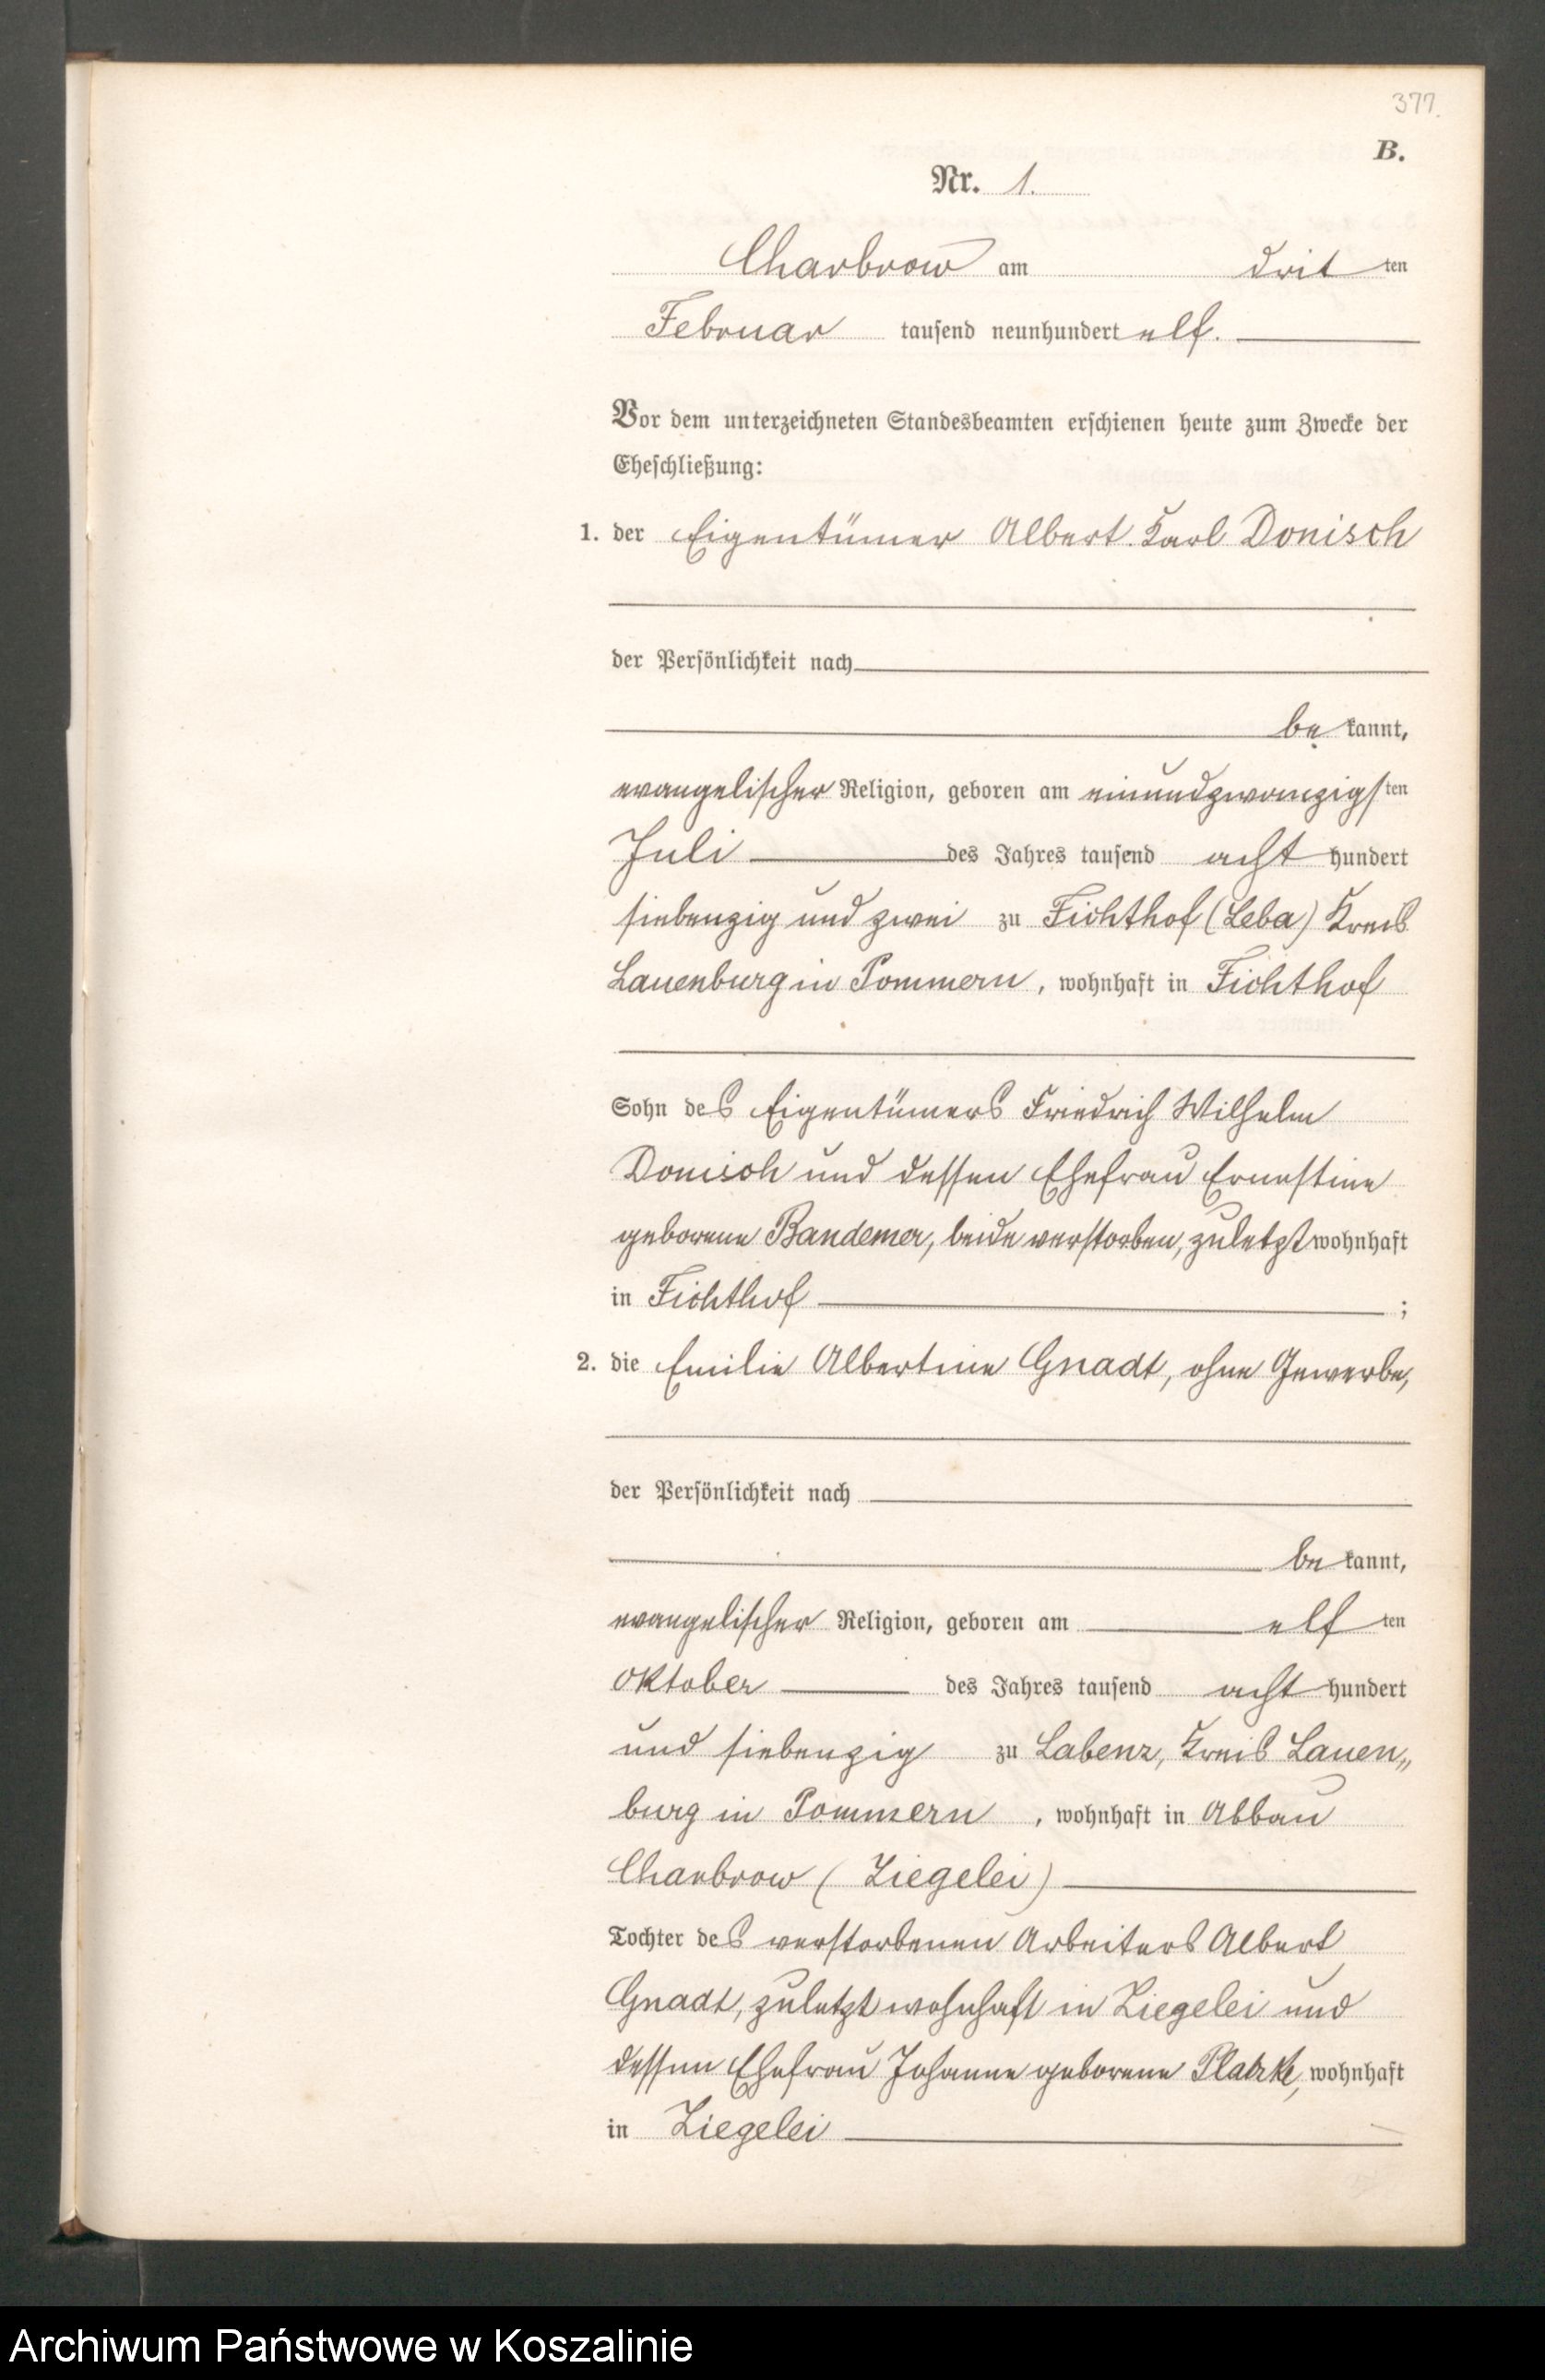 377.
B.
Nr. 1.
Charbrow am dritten
Februar tausend neunhundert elf.
Vor dem unterzeichneten Standesbeamten erschienen heute zum Zwecke der
Eheschließung:
1. der Eigentümer Albert Karl Donisch
der Persönlichkeit nach
bekannt,
evangelischer Religion, geboren am einundzwanzigsten
Juli des Jahres tausend acht hundert
siebenzig und zwei zu Fichthof (Leba) Kreis
Lauenburg in Pommern, wohnhaft in Fichthof
Sohn des Eigentümers Friedrich Wilhelm
Donisch und dessen Ehefrau Ernestine
geborene Bandemer, beide verstorben, zuletzt wohnhaft
in Fichthof ;
2. die Emilie Albertine Gnadt, ohne Gewerbe,
der Persönlichkeit nach
bekannt,
evangelischer Religion, geboren am elften
Oktober des Jahres tausend acht hundert
und siebenzig zu Labenz, Kreis Lauen„
burg in Pommern, wohnhaft in Abbau
Charbrow (Ziegelei)
Tochter des verstorbenen Arbeiters Albert
Gnadt, zuletzt wohnhaft in Ziegelei und
dessen Ehefrau Johanne geborene wohnhaft
in Ziegelei
Archiwum Państwowe w Koszalinie